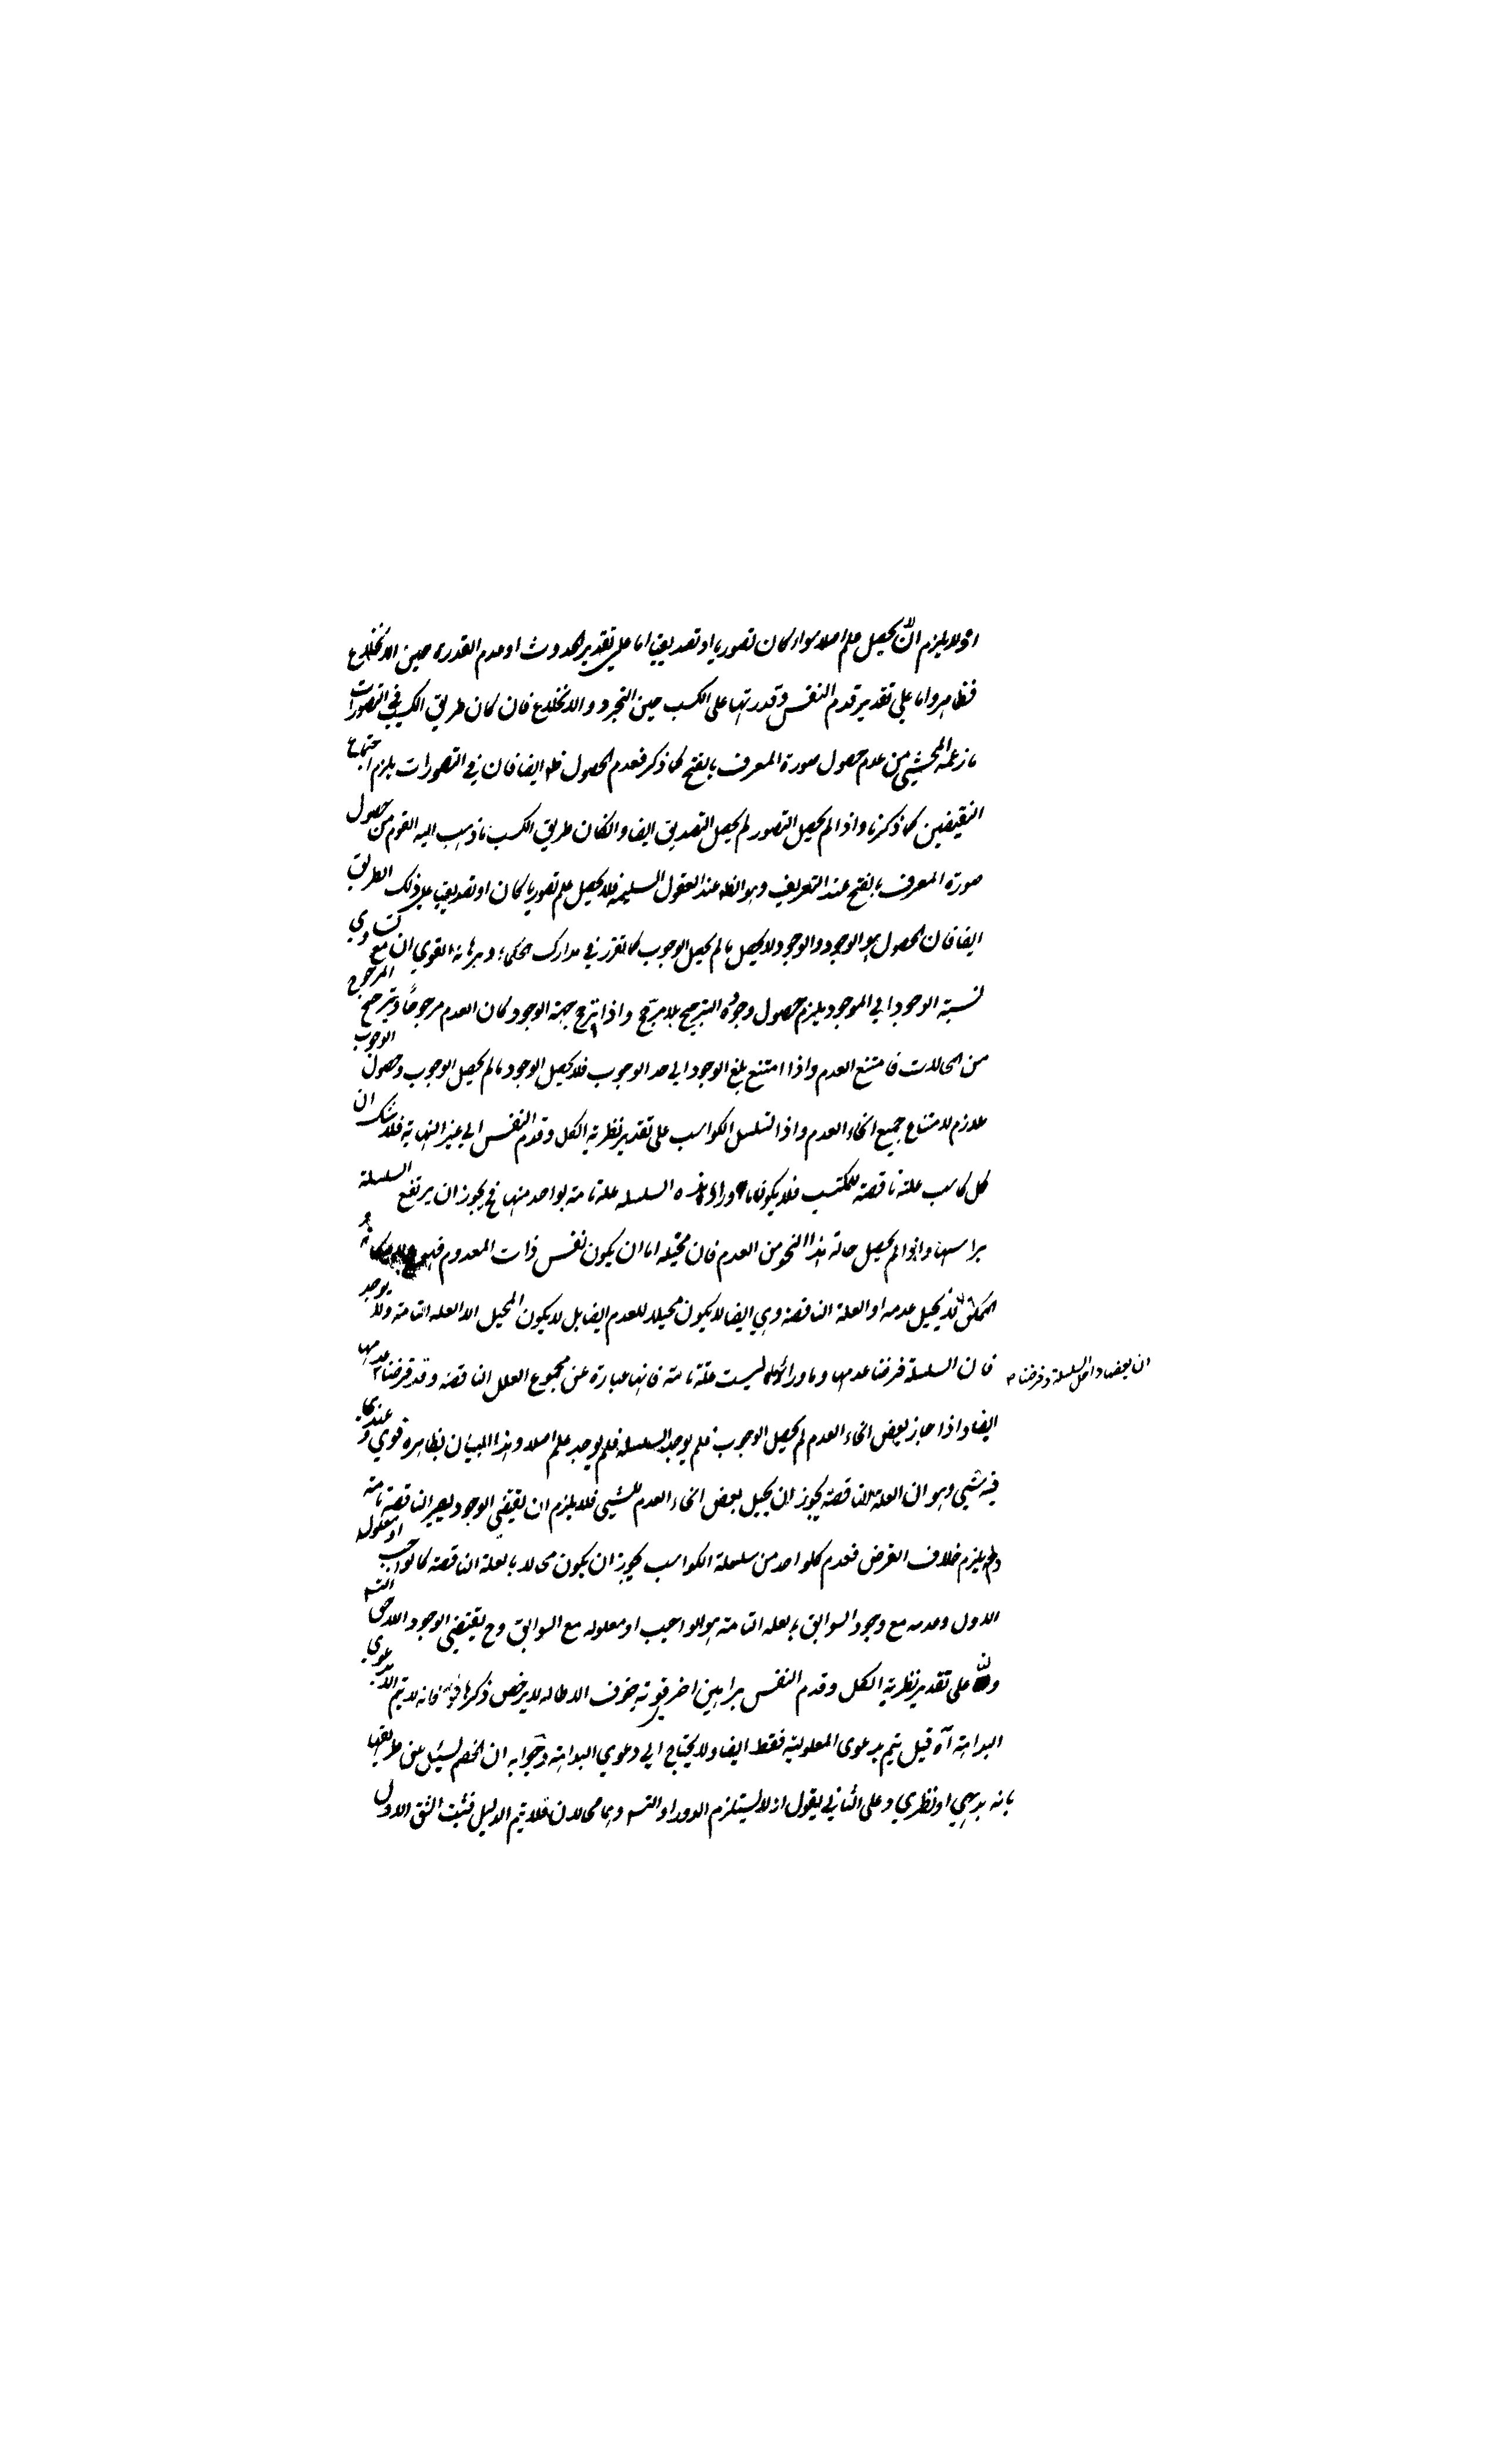 اذ لا يلزم ان لا يحصل علم اصلا سواء كان تصوريا او تصديقيا اما على تقدير الحدوث او عدم القدرة حين الانخلاع
فظاهر واما على تقدير قدم النفس وقدرتها على الكسب حين التجرد والانخلاع فان كان طريق الكسب في التصورات
ما زعمه المحشي من عدم حصول صورة المعرف بالفتح كما ذكر فعدم الحصول ظ ايضا فان في التصورات يلزم اجتماع
النقيضين كما ذكرنا واذا لم يحصل التصور لم يحصل التصديق ايضا والكان طريق الكسب ما ذهب اليه القوم من حصول
صورة المعرف بالفتح عند التعريف وهو الظ عند العقول السليمة فلا يحصل علم تصوريا كان او تصديقيا على ذلك الطريق
ايضا فان الحصول هو الوجود والوجود لا يحصل ما لم يحصل الوجوب كما تقرر في مدارك الحكماء وبرهانه القوي ان مع تساوي
نسبة الوجود الى الموجود يلزم حصول وجوده الترجيح بلا مرجح واذا ترجح جهة الوجود كان العدم مرجوحا وترجيح المرجوح
من المحالات فامتنع العدم واذا امتنع بلغ الوجود الى حد الوجوب فلا يحصل الوجود ما لم يحصل الوجوب وحصول الوجوب
ملازم لامتناع جميع انحاء العدم واذا تسلسل الكواسب على تقدير نظرية الكل وقدم النفس الى غير النهاية فلا شك ان
كل كاسب علة ناقصة للمكتسب فلا يكون ما وراء هذه السلسلة علة تامة بواحد منها فح يجوز ان يرتفع السلسلة
براسها واذا لم يحصل حالة هذا النحو من العدم فان محيله اما ان يكون نفس ذات المعدوم فهو
الممكن لا يحيل عدمه او العلة الناقصة وهي ايضا لا يكون محيلا للعدم ايضا بل لا يكون المحيل الا العلة التامة ولا يوجد
فان السلسلة فرضنا عدمها وما وراءها ليست علة تامة فانها عبارة عن مجموع العلل الناقصة وقد فرضنا عدمها
ان بعضها داخل السلسلة وفرضنا
ايضا واذا جاز بعض انحاء العدم لم يحصل الوجوب فلم يوجد السلسلة فلم يوجد علم اصلا وهذا البيان بظاهره قوي وعندي
فيه شيء وهو ان العلة الناقصة يجوز ان يحيل بعض انحاء العدم للشيء فلا يلزم ان يقتضي الوجود ليصير الناقصة تامة
ولم يلزم خلاف الفرض فعدم كلواحد من سلسلة الكواسب يجوز ان يكون محالا بالعلة الناقصة كالواجب او معلوله
الاول وعدمه مع وجود السوابق بعلة التامة هو الواجب او معلوله مع السوابق وح يقتضي الوجود اللاحق التس
ولنا على تقدير نظرية الكل وقدم النفس براهين اخر قوية خوف الاطالة لا يرخص ذكرها قوله فانه لا يتم الا بدعوى
البداهة آه قيل يتم بدعوى المعلومية فقط ايضا ولا يحتاج الى دعوى البداهة وجوابه ان الخصم يسئل عن طريقها
بانه بديهي او نظري وعلى الثاني يقول انه لا يستلزم الدور او التس وهما محالان فلا يتم الدليل فثبت الشق الاول